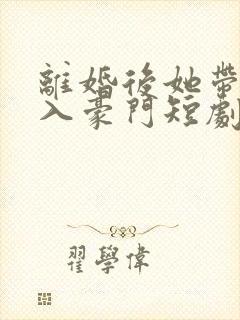 離婚後她帶
入豪門短劇
翟學偉